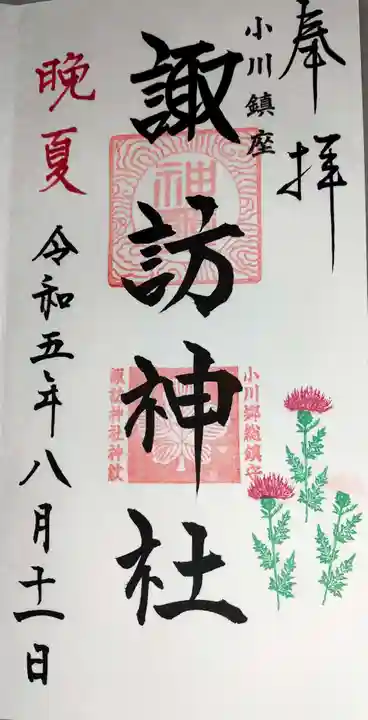 奉拝
小川鎮座
諏訪神社
小川郷総鎮守
諏訪神社神紋
晩夏
令和五年八月十一日